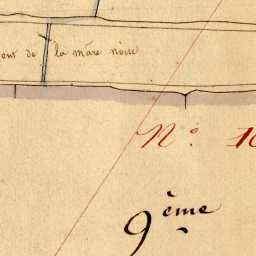 ent de la mare noire
N.o 10
9.ème